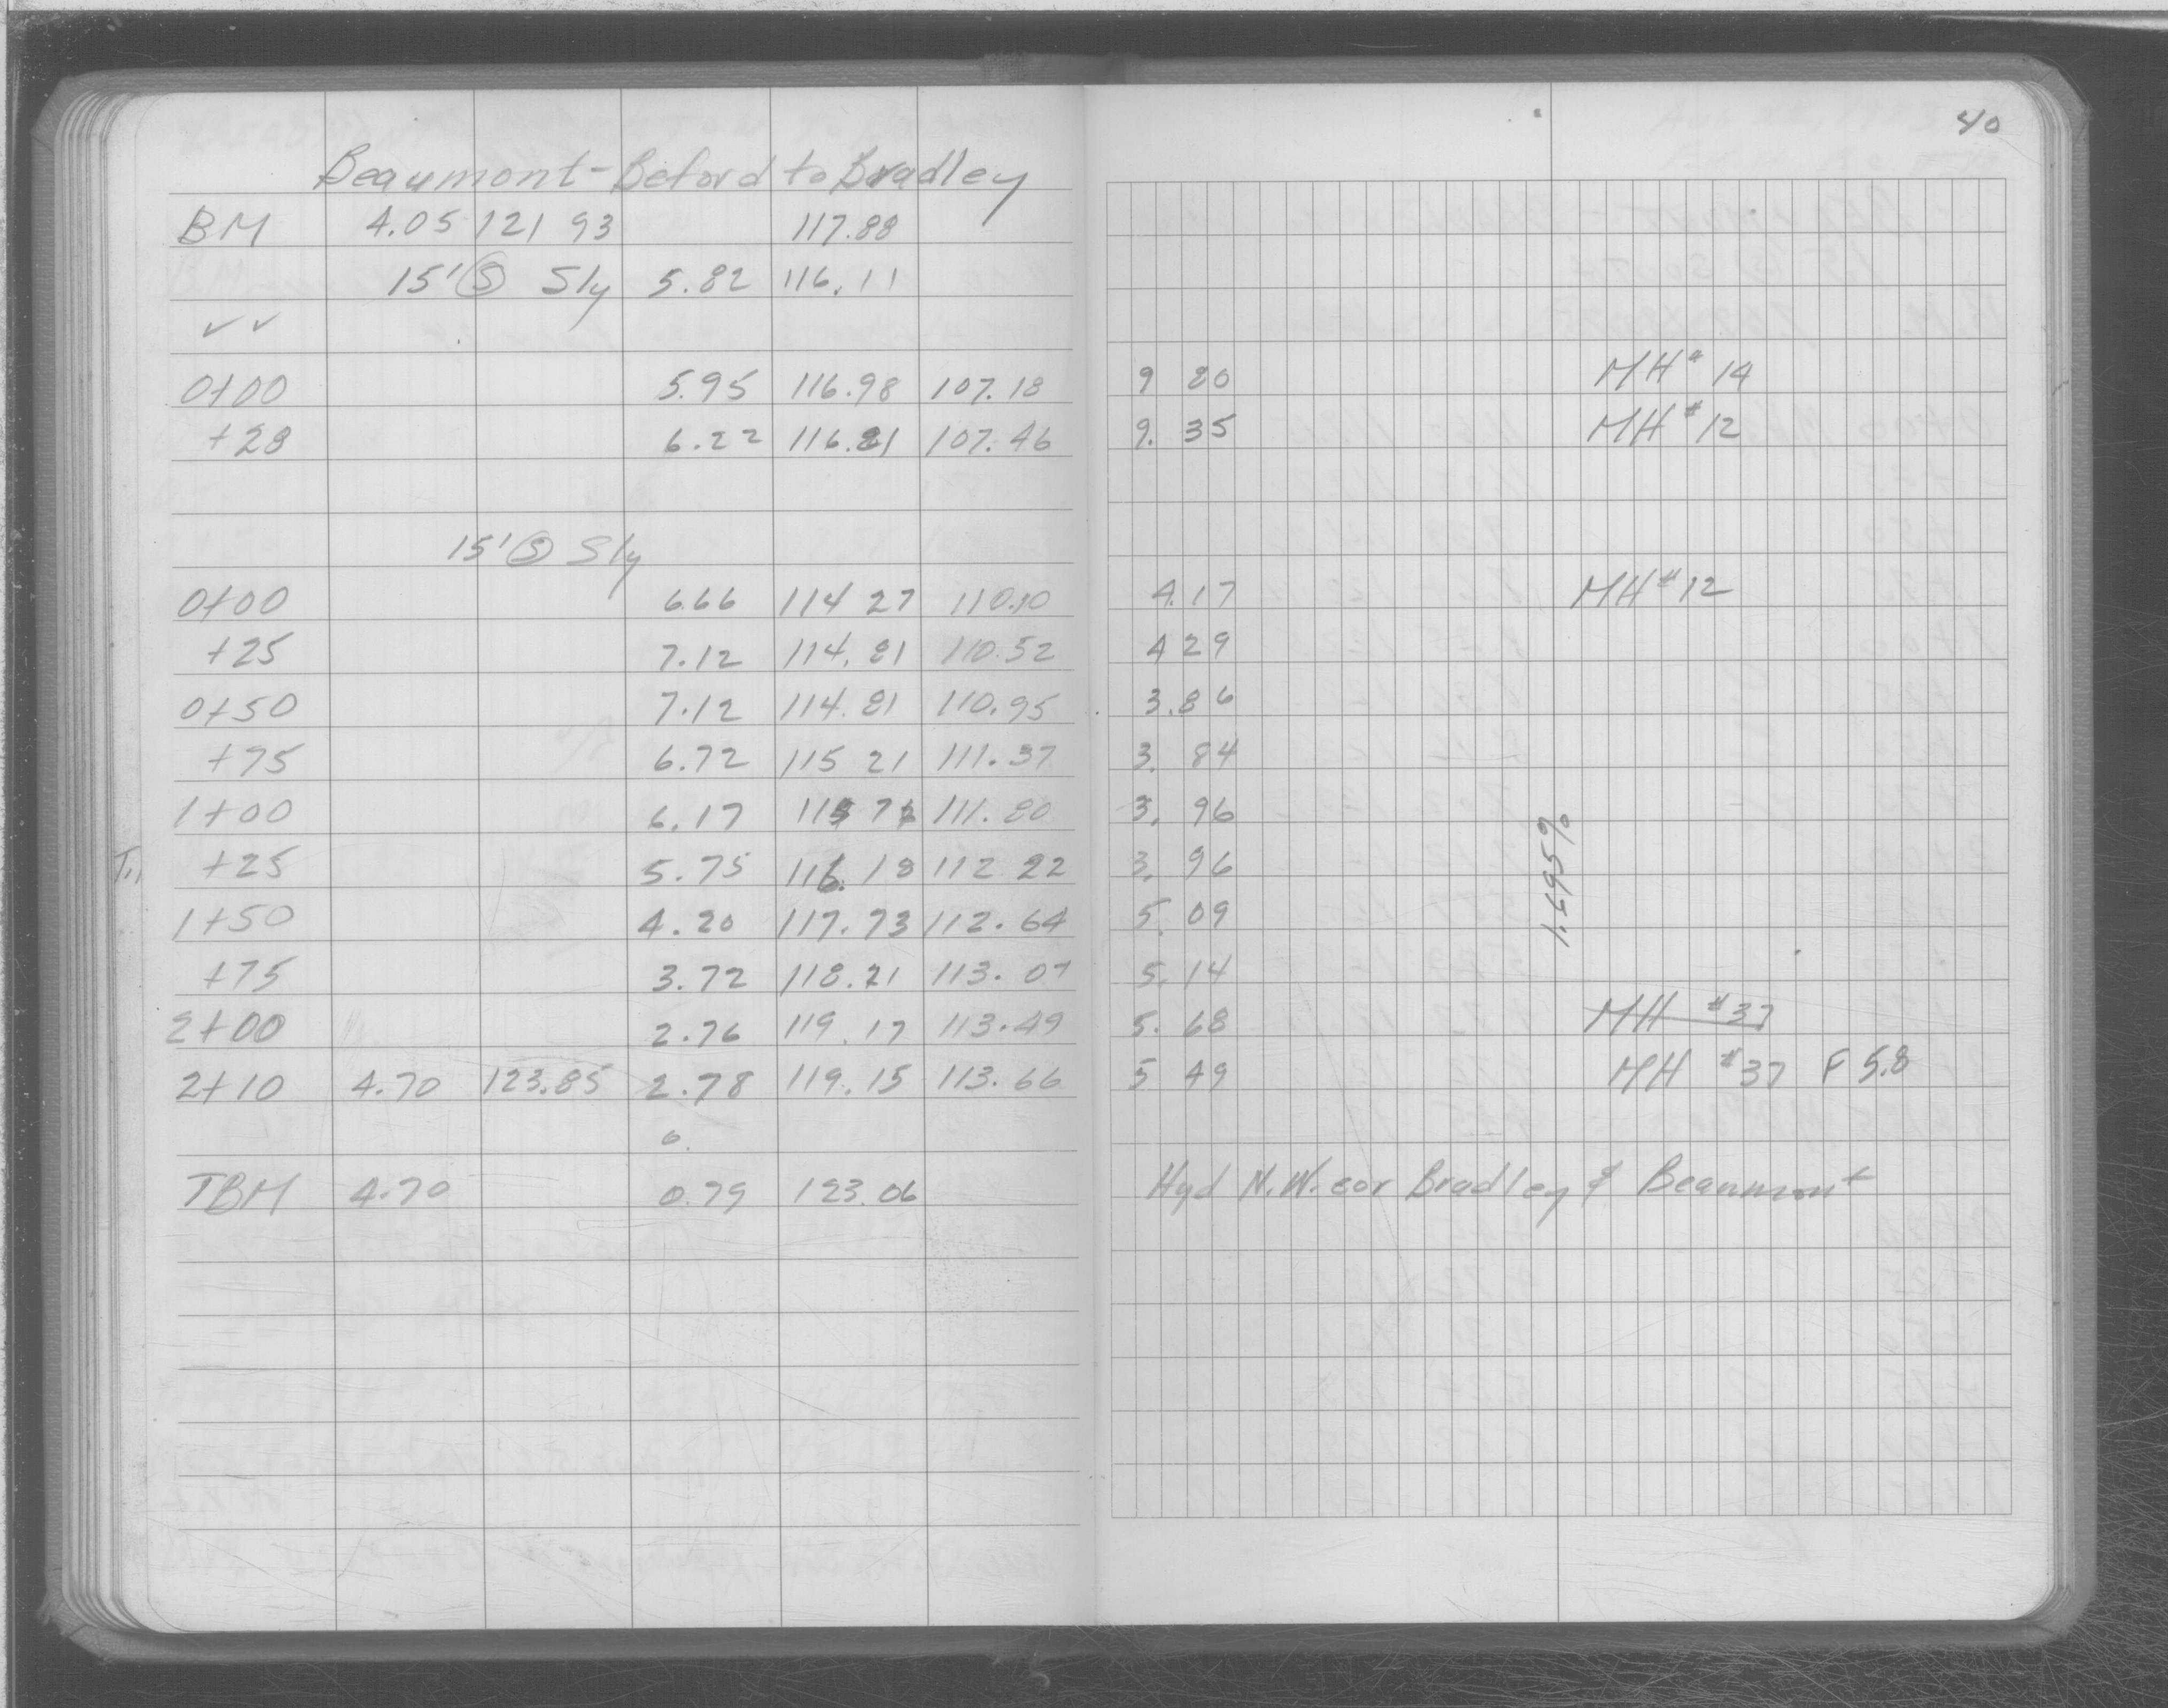 40
Beaumont - Beford to Bradley
BM 4.05 121 93 117.88
15' Ⓢ Sly 5.82 116.11
✓ ✓
0+00 5.95 116.98 107.18 9 80 MH# 14
+28 6.22 116.81 107.46 9. 35 MH# 12
15' Ⓢ Sly
0+00 6.66 114 27 110.10 4.17 MH# 12
+25 7.12 114.81 110.52 4 29
0+50 7.12 114.81 110.95 3.86
+75 6.72 115 21 111.37 3. 84
1+00 6.17 115 76 111.80 3. 96
+25 5.75 116.18 112 22 3. 96
1+50 4.20 117.73 112.64 5. 09
+75 3.72 118.21 113.07 5. 14
1.695%
2+00 2.76 119.17 113.49 5. 68 MH #37
2+10 4.70 123.85 2.78 119.15 113.66 5 49 MH #37 F 5.8
0.
TBM 4.70 0.79 123.06 Hyd N.W. cor Bradley & Beaumont